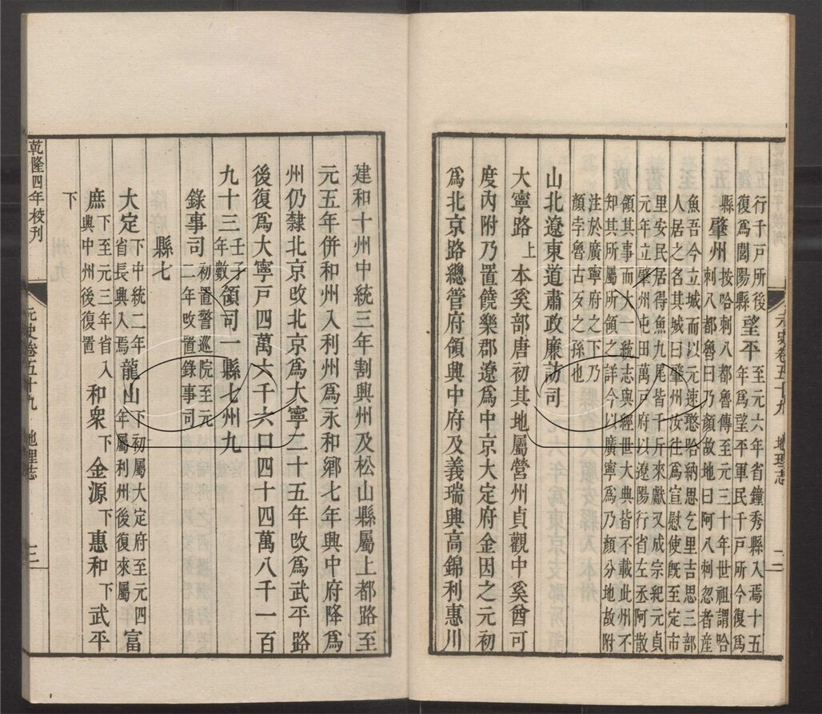 行千戶所後
復爲閭陽縣
望平
至元六年省鐘秀縣入焉十五
年爲望平軍民千戶所今復爲
縣
肇州
按哈剌八都魯傳至元三十年世祖謂哈
剌八都魯曰乃顔故地曰阿八剌忽者產
魚吾今立城而以元速憨哈納思乞里吉思三部
人居之名其城曰肇州汝往爲宣慰使旣至定市
里安民居得魚九尾皆千斤來獻又成宗紀元貞
元年立肇州屯田萬戶府以遼陽行省左丞阿散
領其事而大一統志與經世大典皆不載此州不
知其所屬所領之詳今以廣寧爲乃顔分地故附
注於廣寧府之下乃
顔孛魯古歹之孫也
山北遼東道肅政廉訪司
大寧路上本奚部唐初其地屬營州貞觀中奚酋可
度內附乃置饒樂郡遼爲中京大定府金因之元初
爲北京路總管府領興中府及義瑞興高錦利惠川
建和十州中統三年割興州及松山縣屬上都路至
元五年併和州入利州爲永和鄉七年興中府降爲
州仍隸北京改北京爲大寧二十五年改爲武平路
後復爲大寧戶四萬六千六口四十四萬八千一百
九十三
壬子
年數
領司一縣七州九
錄事司
初置警巡院至元
二年改置錄事司
縣七
大定
下中統二年
省長興入焉
龍山
下初屬大定府至元四
年屬利州後復來屬
富
庶
下至元三年省入
興中州後復置
和衆下金源下惠和下武平
下
乾隆四年校刊
元史卷五十九 地理志 三
元史卷五十九 地理志 二